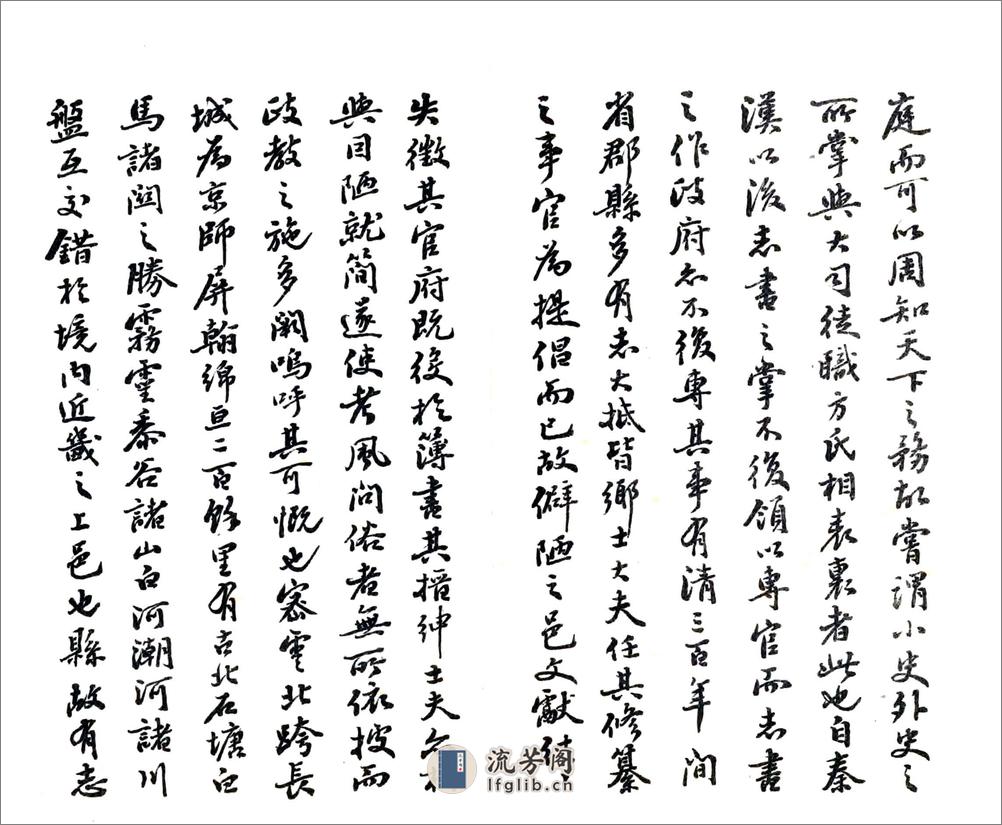 庭而可以周知天下之務故嘗謂小史外史之
所掌與大司徒職方氏相表裏者此也自秦
漢以後志書之掌不復領以專官而志書
之作政府亦不復專其事有清三百年間
省郡縣多有志大抵皆鄉士大夫任其修纂
之事官為提倡而已故僻陋之邑文獻
失徵其官府既役於簿書其搢紳士夫亦
與目陋就簡遂使考風問俗者無所依據而
政教之施多闕嗚呼其可慨也密雲北跨長
城為京師屏翰綿亘二百餘里有古北石塘白
馬諸關之勝霧靈黍谷諸山白河潮河諸川
盤互交錯於境內近畿之上邑也縣故有志
流芳閣
lfglib.cn